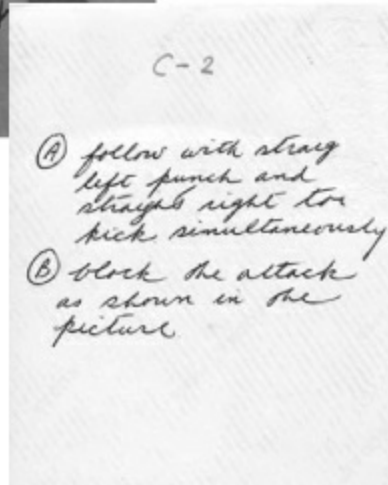 C-2
(A) follow with straig
left punch and
straight right toe
kick simultaneously
(B) block the attack
as shown in the
picture